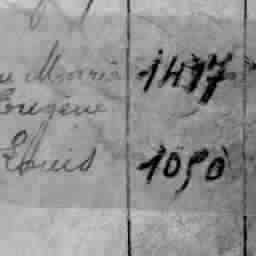 Morris 1417
Eugène
Louis 1050